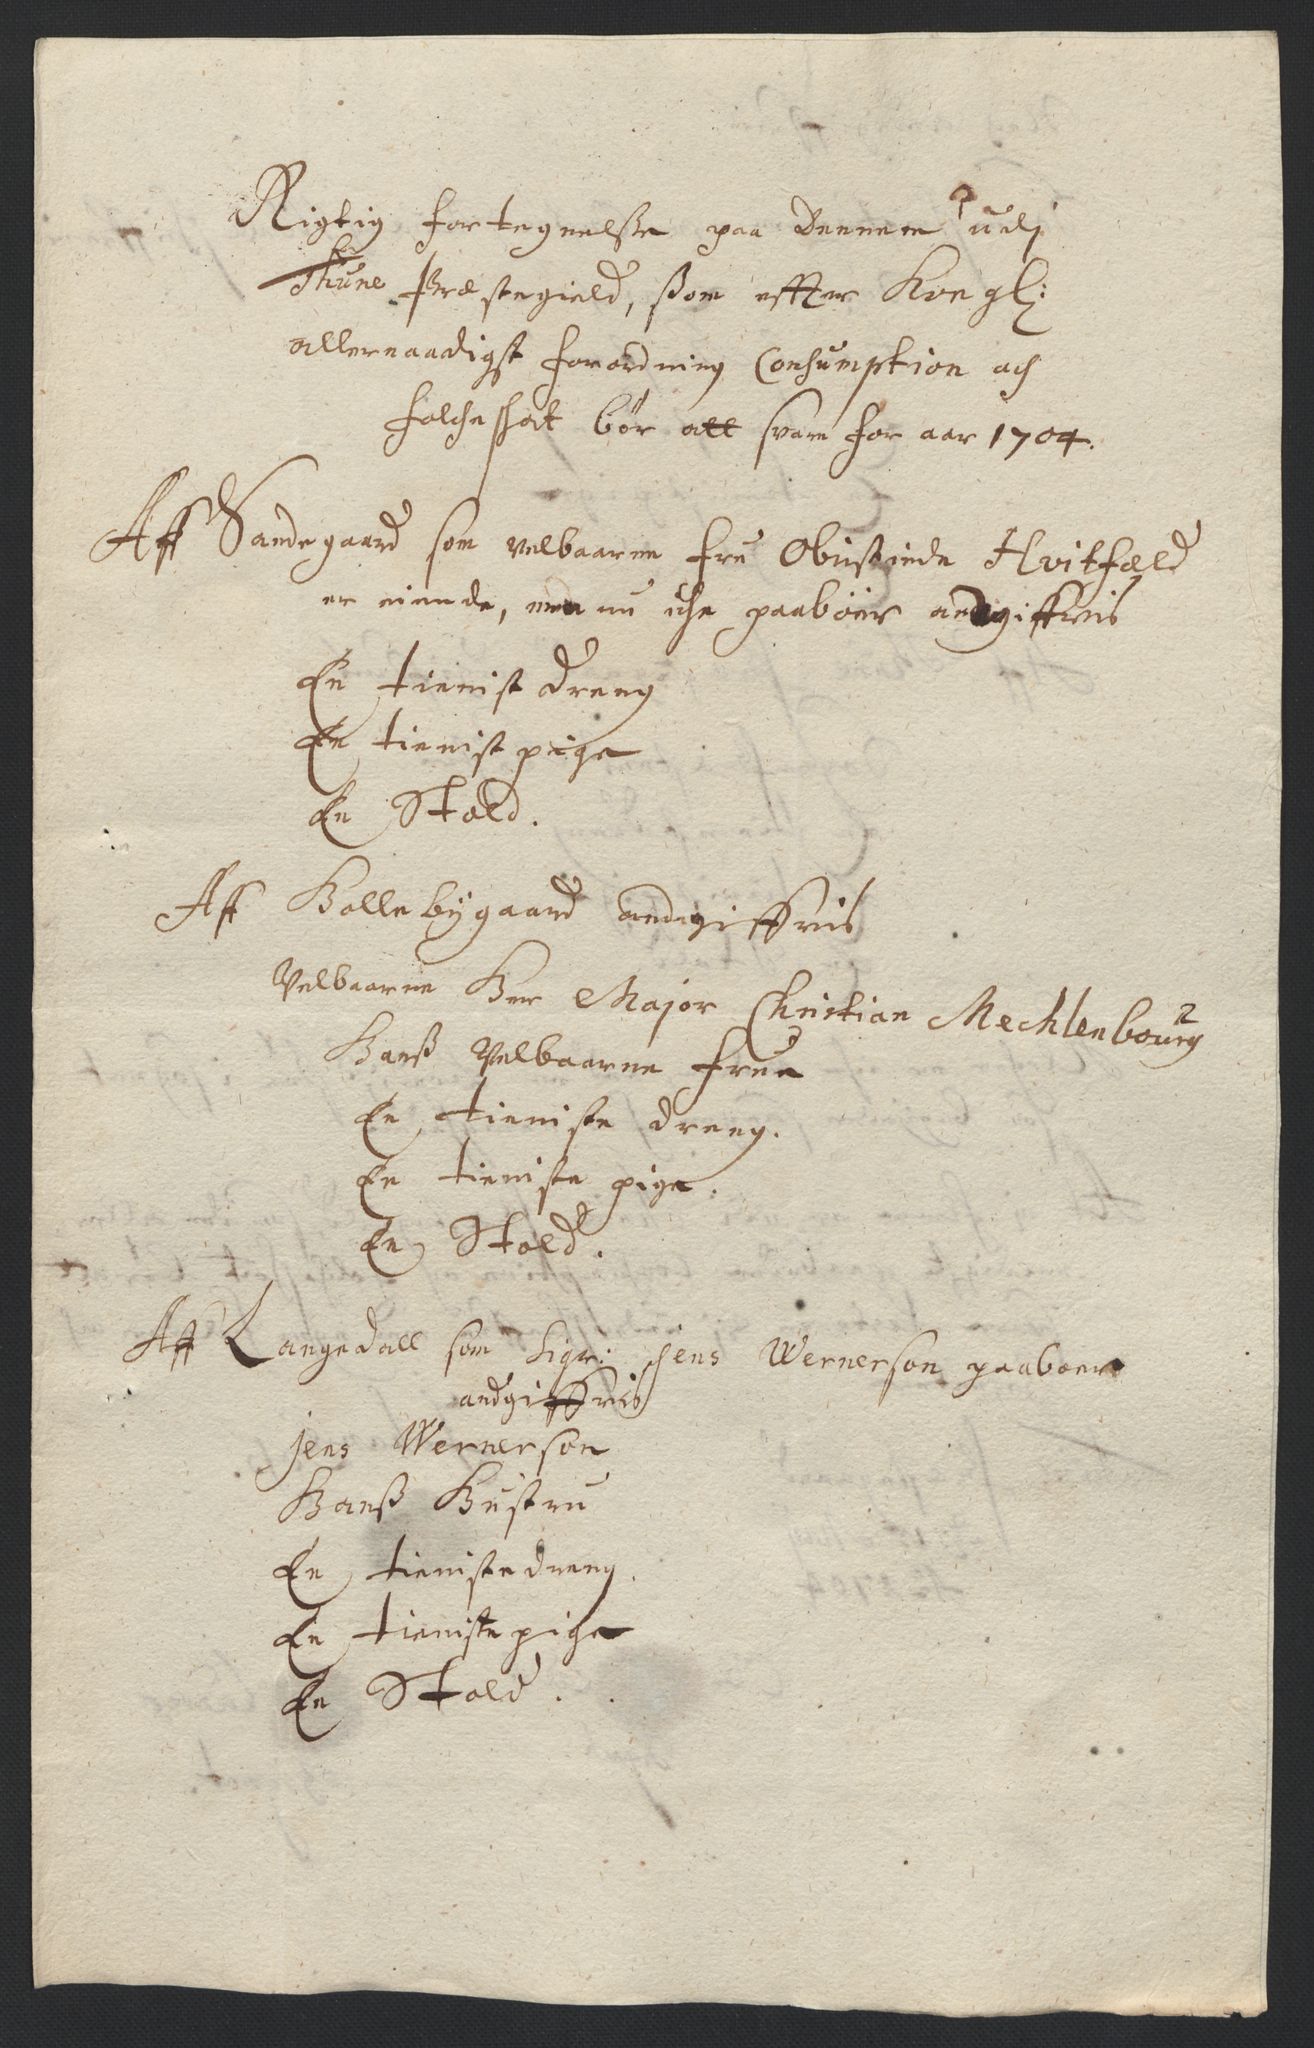 Rigtig fortegnelsse paa Dennem udj
Thune Præstegield, som effter Kongl:
allernaadigst forordning Consumption och
folcheskat bør att svare for aar 1704.
Aff Sandegaard som velbaarne frue Øbristinde Hvitfæld
er eiende, men nu iche paaboer andgiffvis
En tienist dreng
En tienist pige
En Stold.
Aff Hollebygaard andgiffvis
Velbaarne Her Major Christian Mechlenbourg
Hanß Velbaarne frue
En tieniste dreng.
En tieniste pige.
En Stold.
Aff Langedall som Sigr: Jens Wernerson paaboer
andgiffvis
Jens Wernerson
Hanß Hustru
En tienistedreng.
En tienistepige
En Stold.